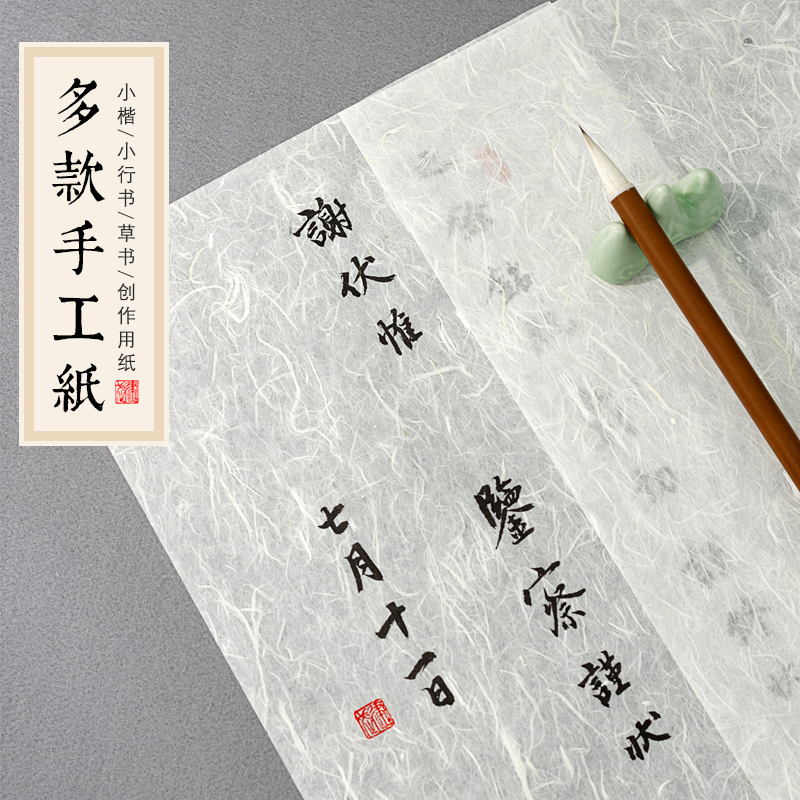 多款手工紙
小楷/小行书/草书/创作用纸
謝伏惟
鑒察謹状
七月十一日